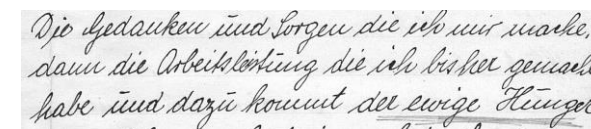 Die Gedanken und Sorgen die ich mir mache,
dann die Arbeitsleistung die ich bisher gemach
habe und dazu kommt der ewige Hunger